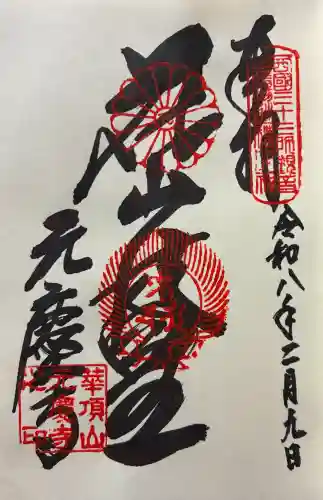 西國三十三所観音
奉拝
令和八年二月九日
花山
元慶寺
華頂山
元慶寺
之印